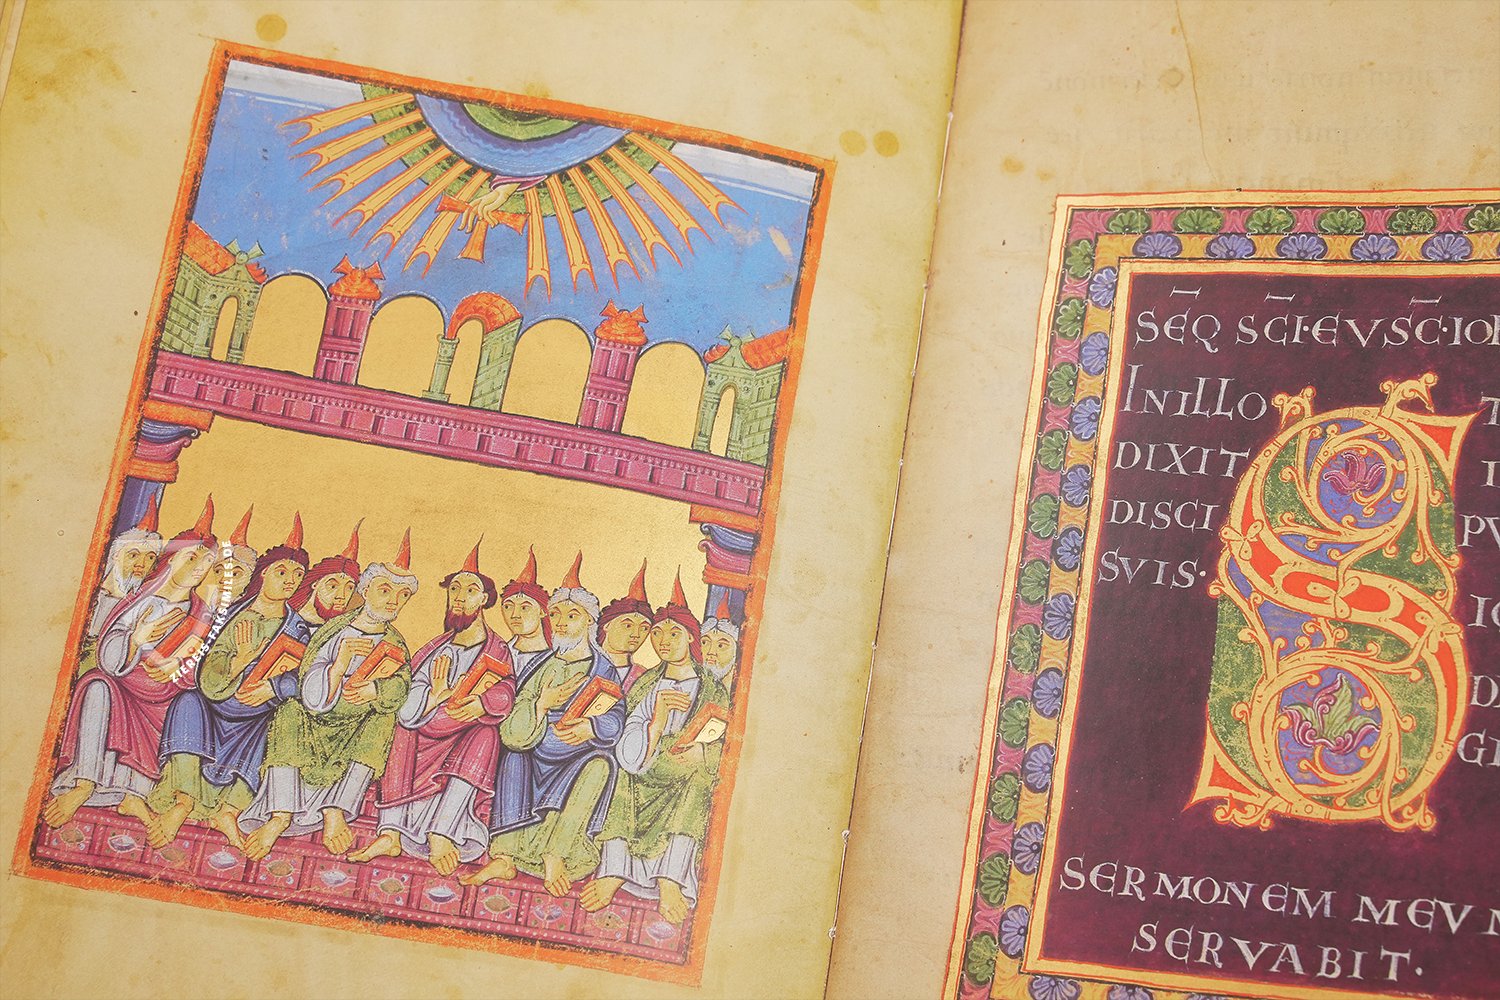 ZIEREIS-FAKSIMILES.DE
SEQ SCI·EVSC·IOh
INILLO
DIXIT
DISCI
SVIS·
SERMONEM MEVM
SERVABIT·